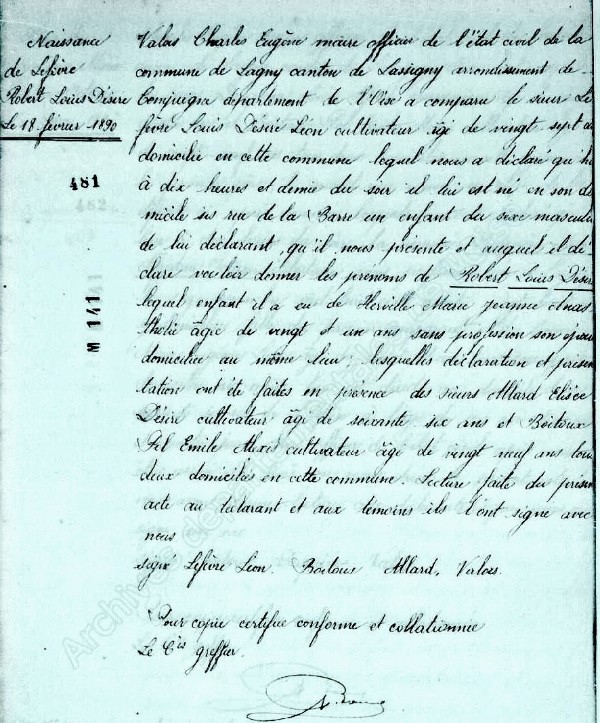 Naissance
de Lefèvre
Robert Louis Désiré
Le 18 février 1890
481
M 141
Valois Charles Eugène maire officier de l'état civil de la
commune de Lagny canton de Lassigny arrondissement de
Compiègne département de l'Oise a comparu le sieur Le
fèvre Louis Désiré Léon cultivateur âgé de vingt sept a
domicilié en cette commune lequel nous a déclaré qu'hi
à dix heures et demie du soir il lui est né en son do
micile sis rue de la Barre un enfant du sexe masculi
de lui déclarant, qu'il nous présente et auquel il dé
clare vouloir donner les prénoms de Robert Louis Désir
lequel enfant il a eu de Herville Marie Jeanne Anas
tholie âgée de vingt et un ans sans profession son épou
domiciliée au même lieu, lesquelles déclaration et présen
tation ont été faites en présence des sieurs Allard Elisée
Désiré cultivateur âgé de soixante six ans et Boitoux
Fil Emile Alexis cultivateur âgé de vingt neuf ans tou
deux domiciliés en cette commune. Lecture faite du présen
acte au déclarant et aux témoins ils l'ont signé avec
nous
signé Lefèvre Léon. Boitoux Allard, Valois.
Pour copie certifiée conforme et collationnée
Le Cis greffier.
Archives dép